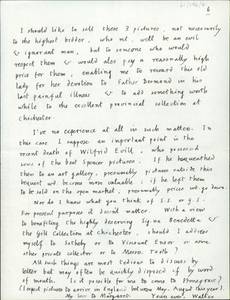 6
I should like to sell these 3 pictures, not necessarily
to the highest bidder, who wd well be an evil
& ignorant man, but to someone who would
respect them & would also pay a reasonably high
price for them, enabling me to reward this old
lady for her devotion to Father Desmond in his
last painful illness & to add something worth
while to the excellent provincial collection at
Chichester.
I've no experience at all in such matters. In this
case I suppose an important point is the
recent death of Wilfrid Evill, who possessed
some of the best Spencer pictures. If he bequeathed
them to an art gallery, presumably pictures outside this
bequest wd become more valuable; if he left them
to be sold on the open market, presumably prices wd go down.
Nor do I know what you think of S.S. or G.S.
For present purposes a secondary matter. With a view
to benefiting the highly deserving Benedetta &
the Gill Collection at Chichester, should I address
myself to Sotheby or to Vincent Enear or some
other private collector or to Messrs. Tooth?
All such things are most tedious to discuss by
letter but may often be quickly disposed of by word
of mouth. Is it possible for me to come to
My love to Margaret. Yours ever, Walter